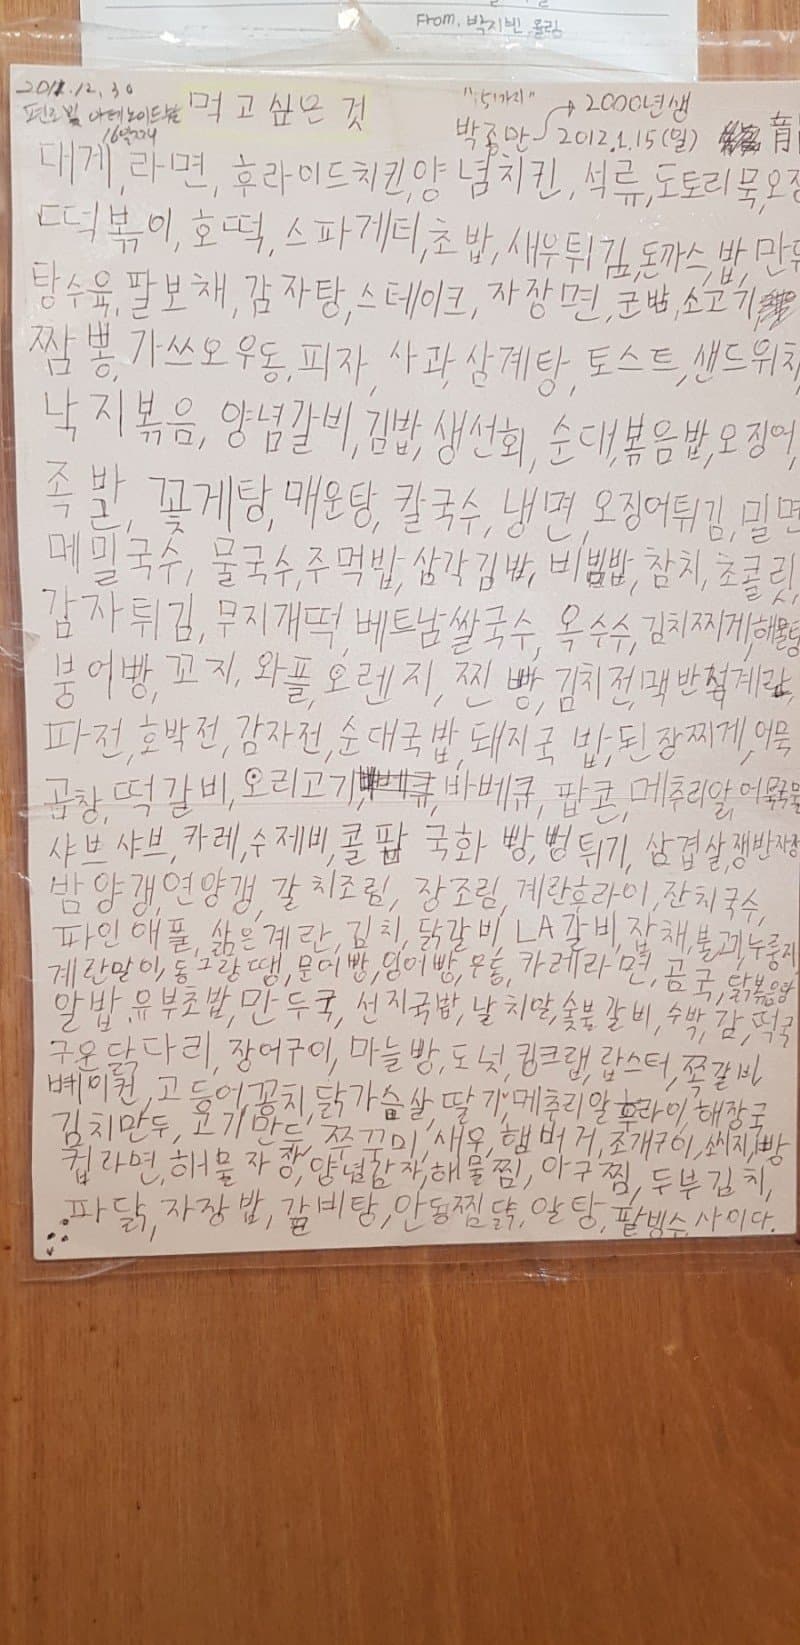 From. 박지빈 올림
2011.12.30
편도 및 아데노이드 수술
16일째
먹고싶은 것
"151가지"
2000년생
박종만
2012.1.15(일)
龍
대게, 라면, 후라이드치킨, 양념치킨, 석류, 도토리묵, 오징
떡볶이, 호떡, 스파게티, 초밥, 새우튀김, 돈까스, 밥, 만두
탕수육, 팔보채, 감자탕, 스테이크, 자장면, 군밤, 소고기,
짬뽕, 가쓰오우동, 피자, 사과, 삼계탕, 토스트, 샌드위치,
낙지볶음, 양념갈비, 김밥, 생선회, 순대, 볶음밥, 오징어,
족발, 꽃게탕, 매운탕, 칼국수, 냉면, 오징어튀김, 밀면
메밀국수, 물국수, 주먹밥, 삼각김밥, 비빔밥, 참치, 초콜릿,
감자튀김, 무지개떡, 베트남쌀국수, 옥수수, 김치찌게, 해물탕
붕어빵, 꼬지, 와플, 오렌지, 찐빵, 김치전, 맥반석계란,
파전, 호박전, 감자전, 순대국밥, 돼지국밥, 된장찌게, 어묵
곱창, 떡갈비, 오리고기, 바베큐, 팝콘, 메추리알, 어묵국물
샤브샤브, 카레, 수제비, 콜팝 국화빵, 뻥튀기, 삼겹살, 쟁반자장
밤양갱, 연양갱, 갈치조림, 장조림, 계란후라이, 잔치국수,
파인애플, 삶은계란, 김치, 닭갈비, LA갈비, 잡채, 불고기, 누룽지,
계란말이, 동그랑땡, 문어빵, 잉어빵, 우동, 카레라면, 곰국, 닭볶음탕
알밥, 유부초밥, 만두국, 선지국밥, 날치알, 숯불갈비, 수박, 감, 떡국
구운닭다리, 장어구이, 마늘빵, 도넛, 킹크랩, 랍스터, 쪽갈비
베이컨, 고등어, 꽁치, 닭가슴살, 딸기, 메추리알 후라이, 해장국
김치만두, 고기만두, 쭈꾸미, 새우, 햄버거, 조개구이, 소시지, 빵
컵라면, 해물자장, 양념감자, 해물찜, 아구찜, 두부김치,
파닭, 자장밥, 갈비탕, 안동찜닭, 알탕, 팥빙수, 사이다.